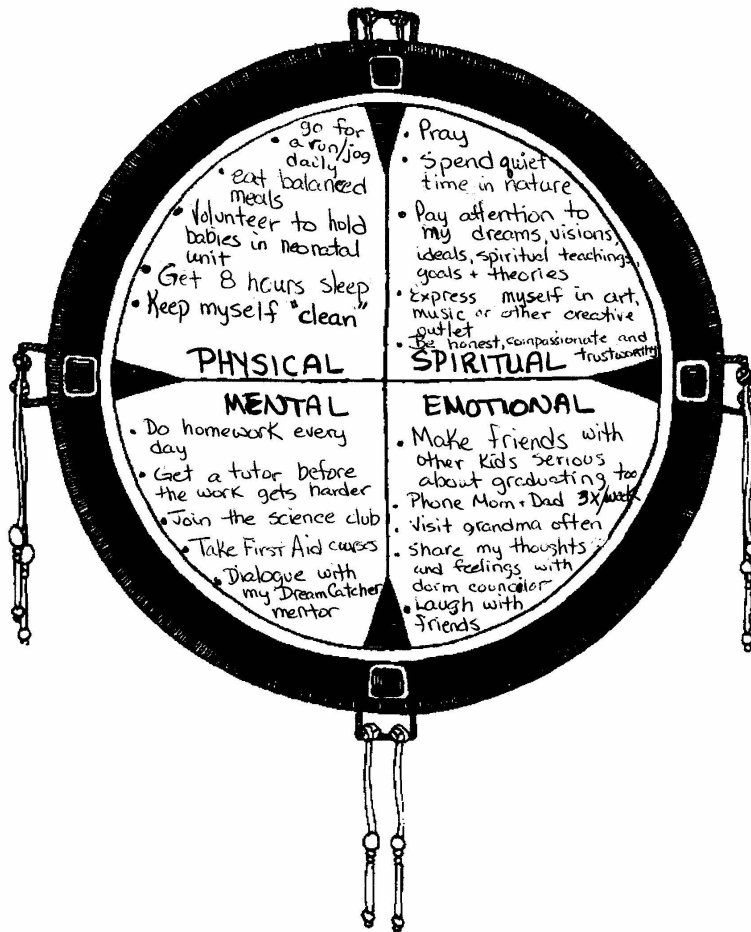 • go for
a run/jog
daily
• eat balanced
meals
• Volunteer to hold
babies in neonatal
unit
• Get 8 hours sleep
• Keep myself "clean"
PHYSICAL
• Pray
• Spend quiet
time in nature
• Pay attention to
my dreams, visions,
ideals, spiritual teachings,
goals + theories
• Express myself in art,
music or other creative
outlet
• Be honest, compassionate and
trustworthy
SPIRITUAL
MENTAL
• Do homework every
day
• Get a tutor before
the work gets harder
• Join the science club
• Take First Aid courses
• Dialogue with
my DreamCatcher
mentor
EMOTIONAL
• Make friends with
other kids serious
about graduating too
• Phone Mom + Dad 3x/week
• Visit grandma often
• Share my thoughts
and feelings with
dorm councilor
• Laugh with
friends